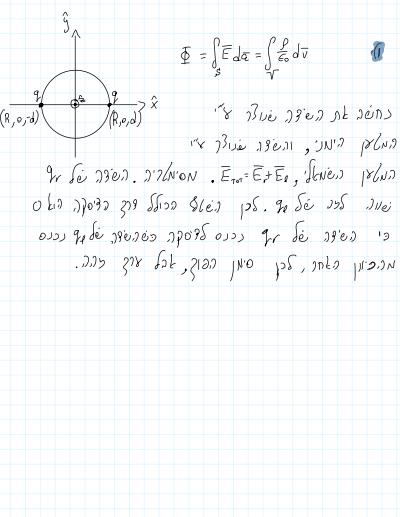 ŷ
Φ = ∫_S E̅ da̅ = ∫_V ρ/ε₀ dv̅
q q
ẑ x̂
(R,0,-d) (R,0,d)
נחשב את השדה שנוצר ע"י
המטען הימני, והשדה שנוצר ע"י
המטען השמאלי, E̅_TOT = E̅_r + E̅_l. מסימטריה, השדה של q_r
שווה לזה של q_l. לכן השטף הכולל דרך הדיסקה הוא 0
כי השדה של q_r נכנס לדיסקה כשהשדה של q_l נכנס
מהכיוון האחר, לכן סימן הפוך, אבל ערך זהה.